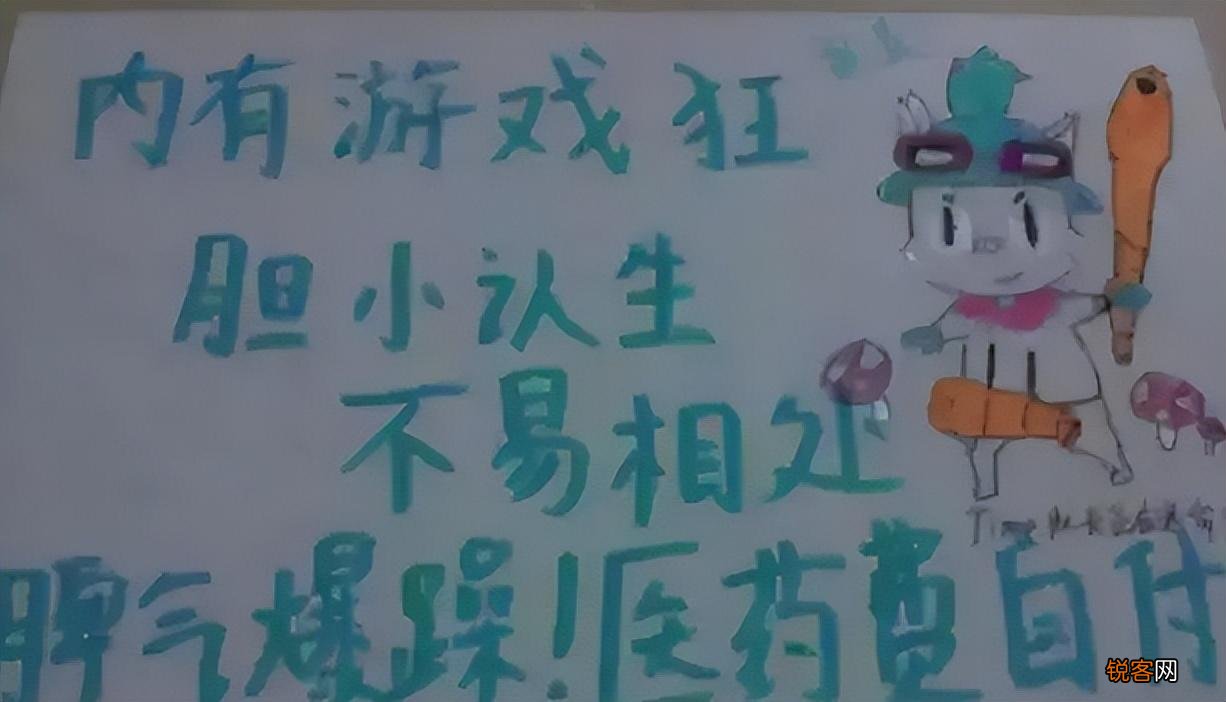 内有游戏狂
胆小认生
不易相处
脾气爆躁!医药费自付
锐客网